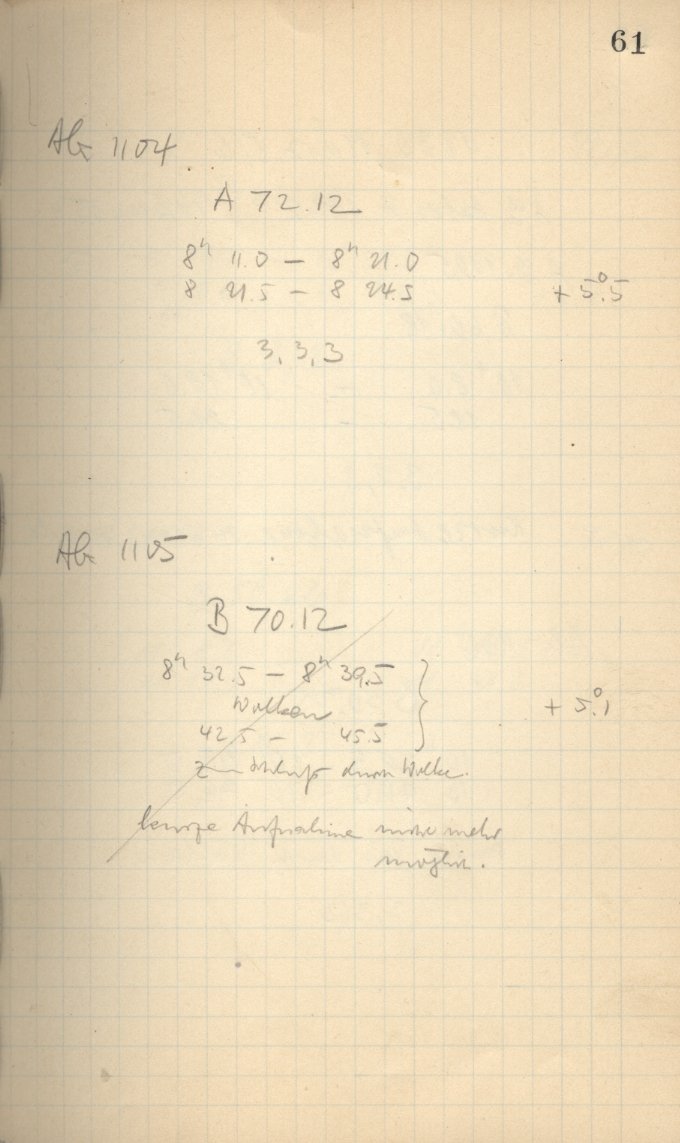 61
AG 1104
A 72.12
8h 11.0 — 8h 21.0
8 21.5 — 8 24.5 + 5°.5
3, 3, 3
AG 1105
B 70.12
8h 32.5 — 8h 39.5
Wolken + 5°.1
42.5 — 45.5
Zum Schluß durch Wolke.
kurze Aufnahme nicht mehr
möglich.